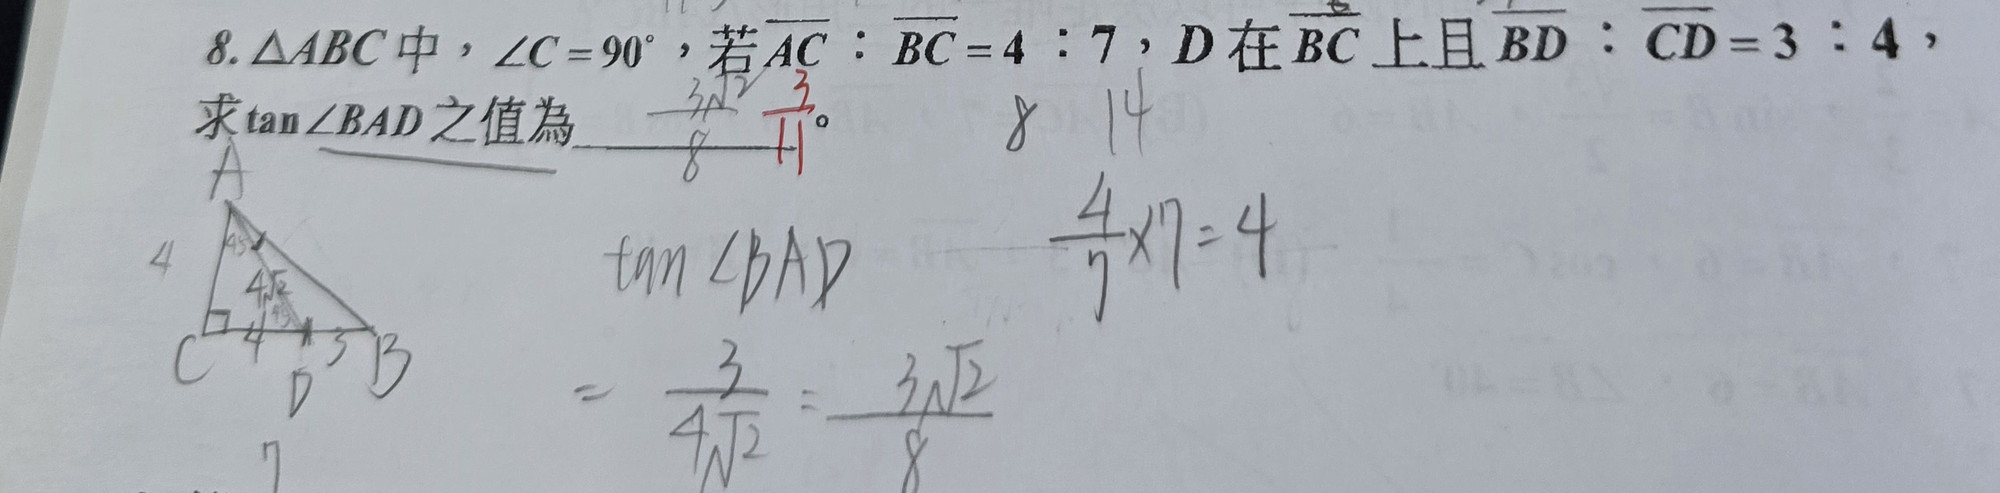 8. △ABC中，∠C=90°，若AC：BC=4：7，D在BC上且BD：CD=3：4，
求tan∠BAD之值為 3√2/8 3/11。
8 14
A
4
45
4√2
45
C 4 3 B
D
7
tan∠BAD
= 3/4√2 = 3√2/8
4/7×7=4